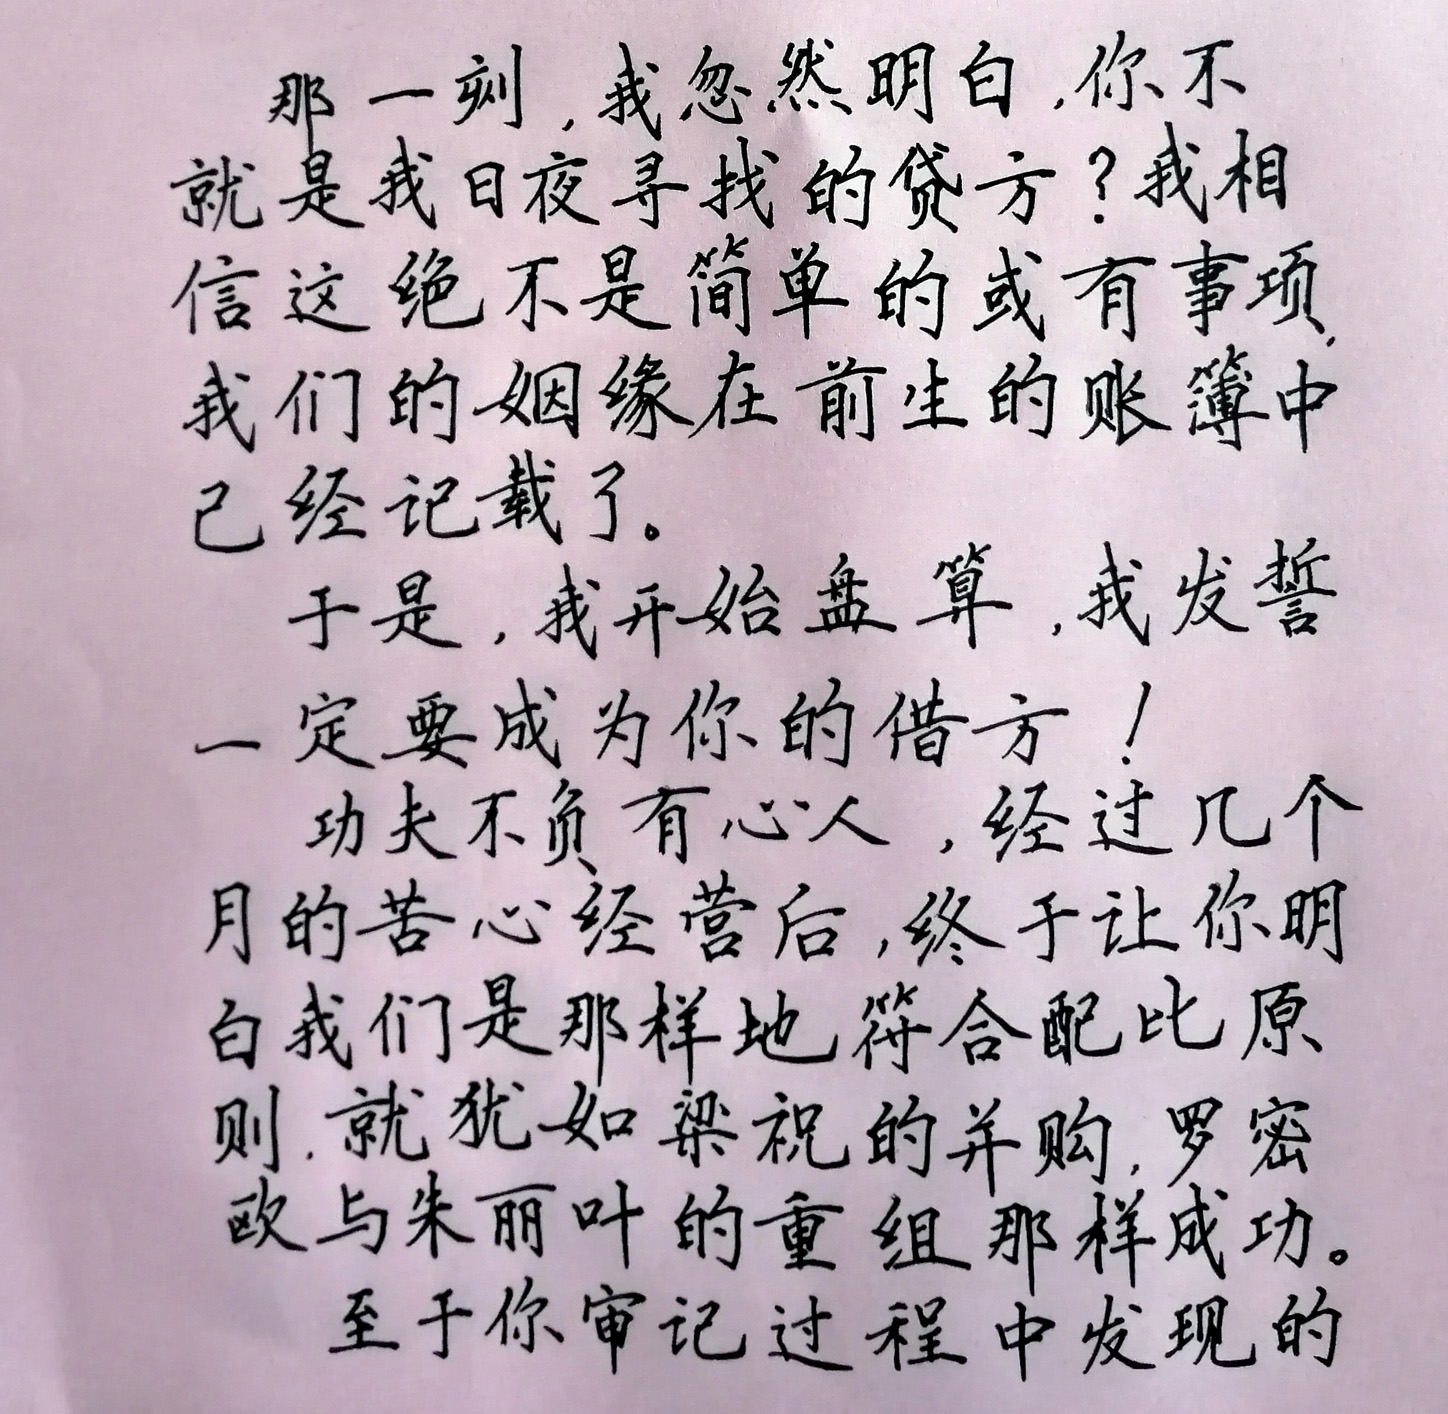 那一刻,我忽然明白,你不
就是我日夜寻找的贷方?我相
信这绝不是简单的或有事项,
我们的姻缘在前生的账簿中
已经记载了。
于是,我开始盘算,我发誓
一定要成为你的借方!
功夫不负有心人,经过几个
月的苦心经营后,终于让你明
白我们是那样地符合配比原
则,就犹如梁祝的并购,罗密
欧与朱丽叶的重组那样成功。
至于你审记过程中发现的